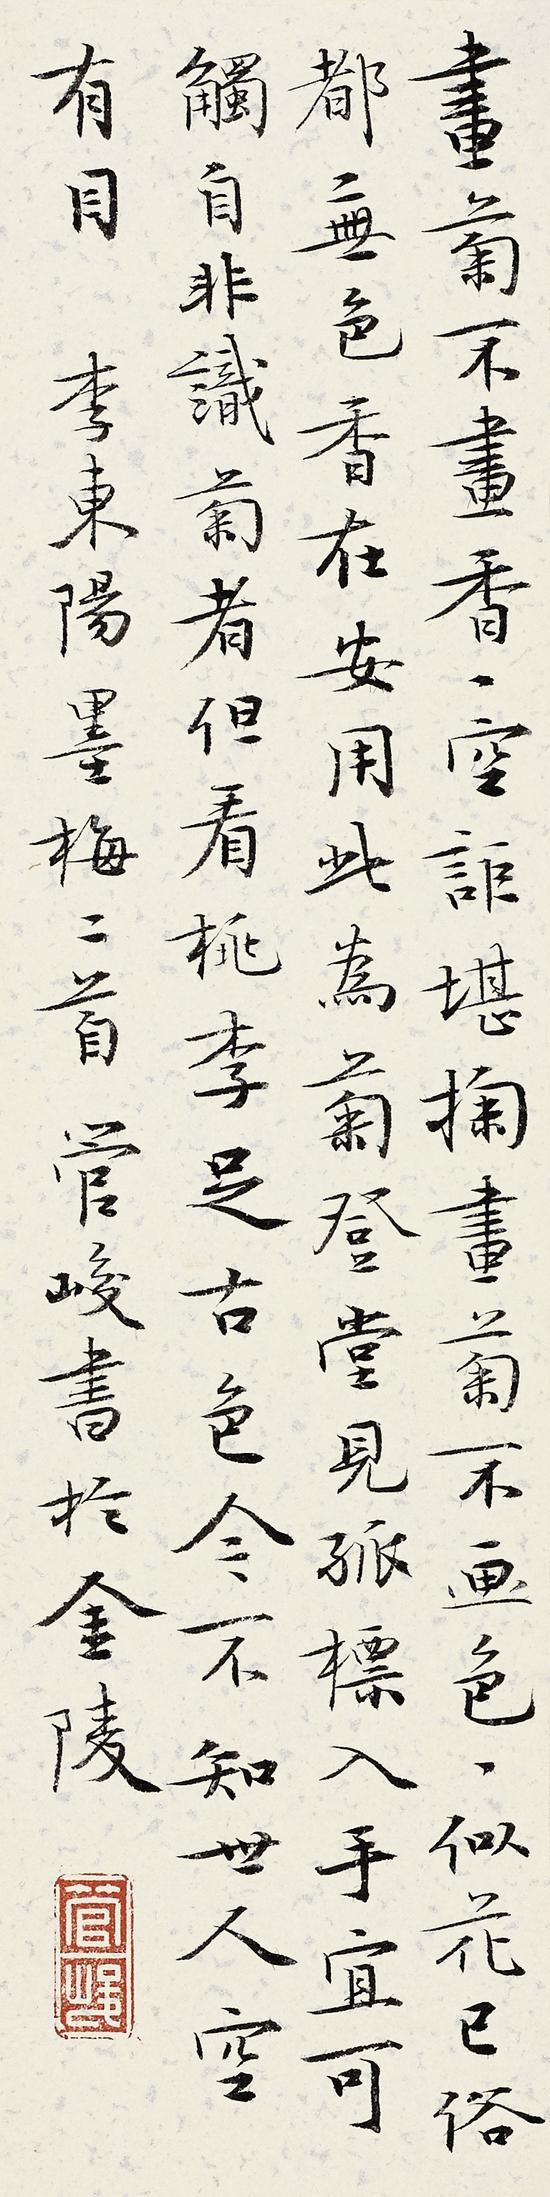 畫菊不畫香丶空詎堪掬畫菊不画色丶似花已俗
都無色香在安用此為菊登堂見孤標入手宜可
觸自非識菊者但看桃李足古色含不知世人空
有目 李東陽墨梅二首 管峻書於金陵
管峻